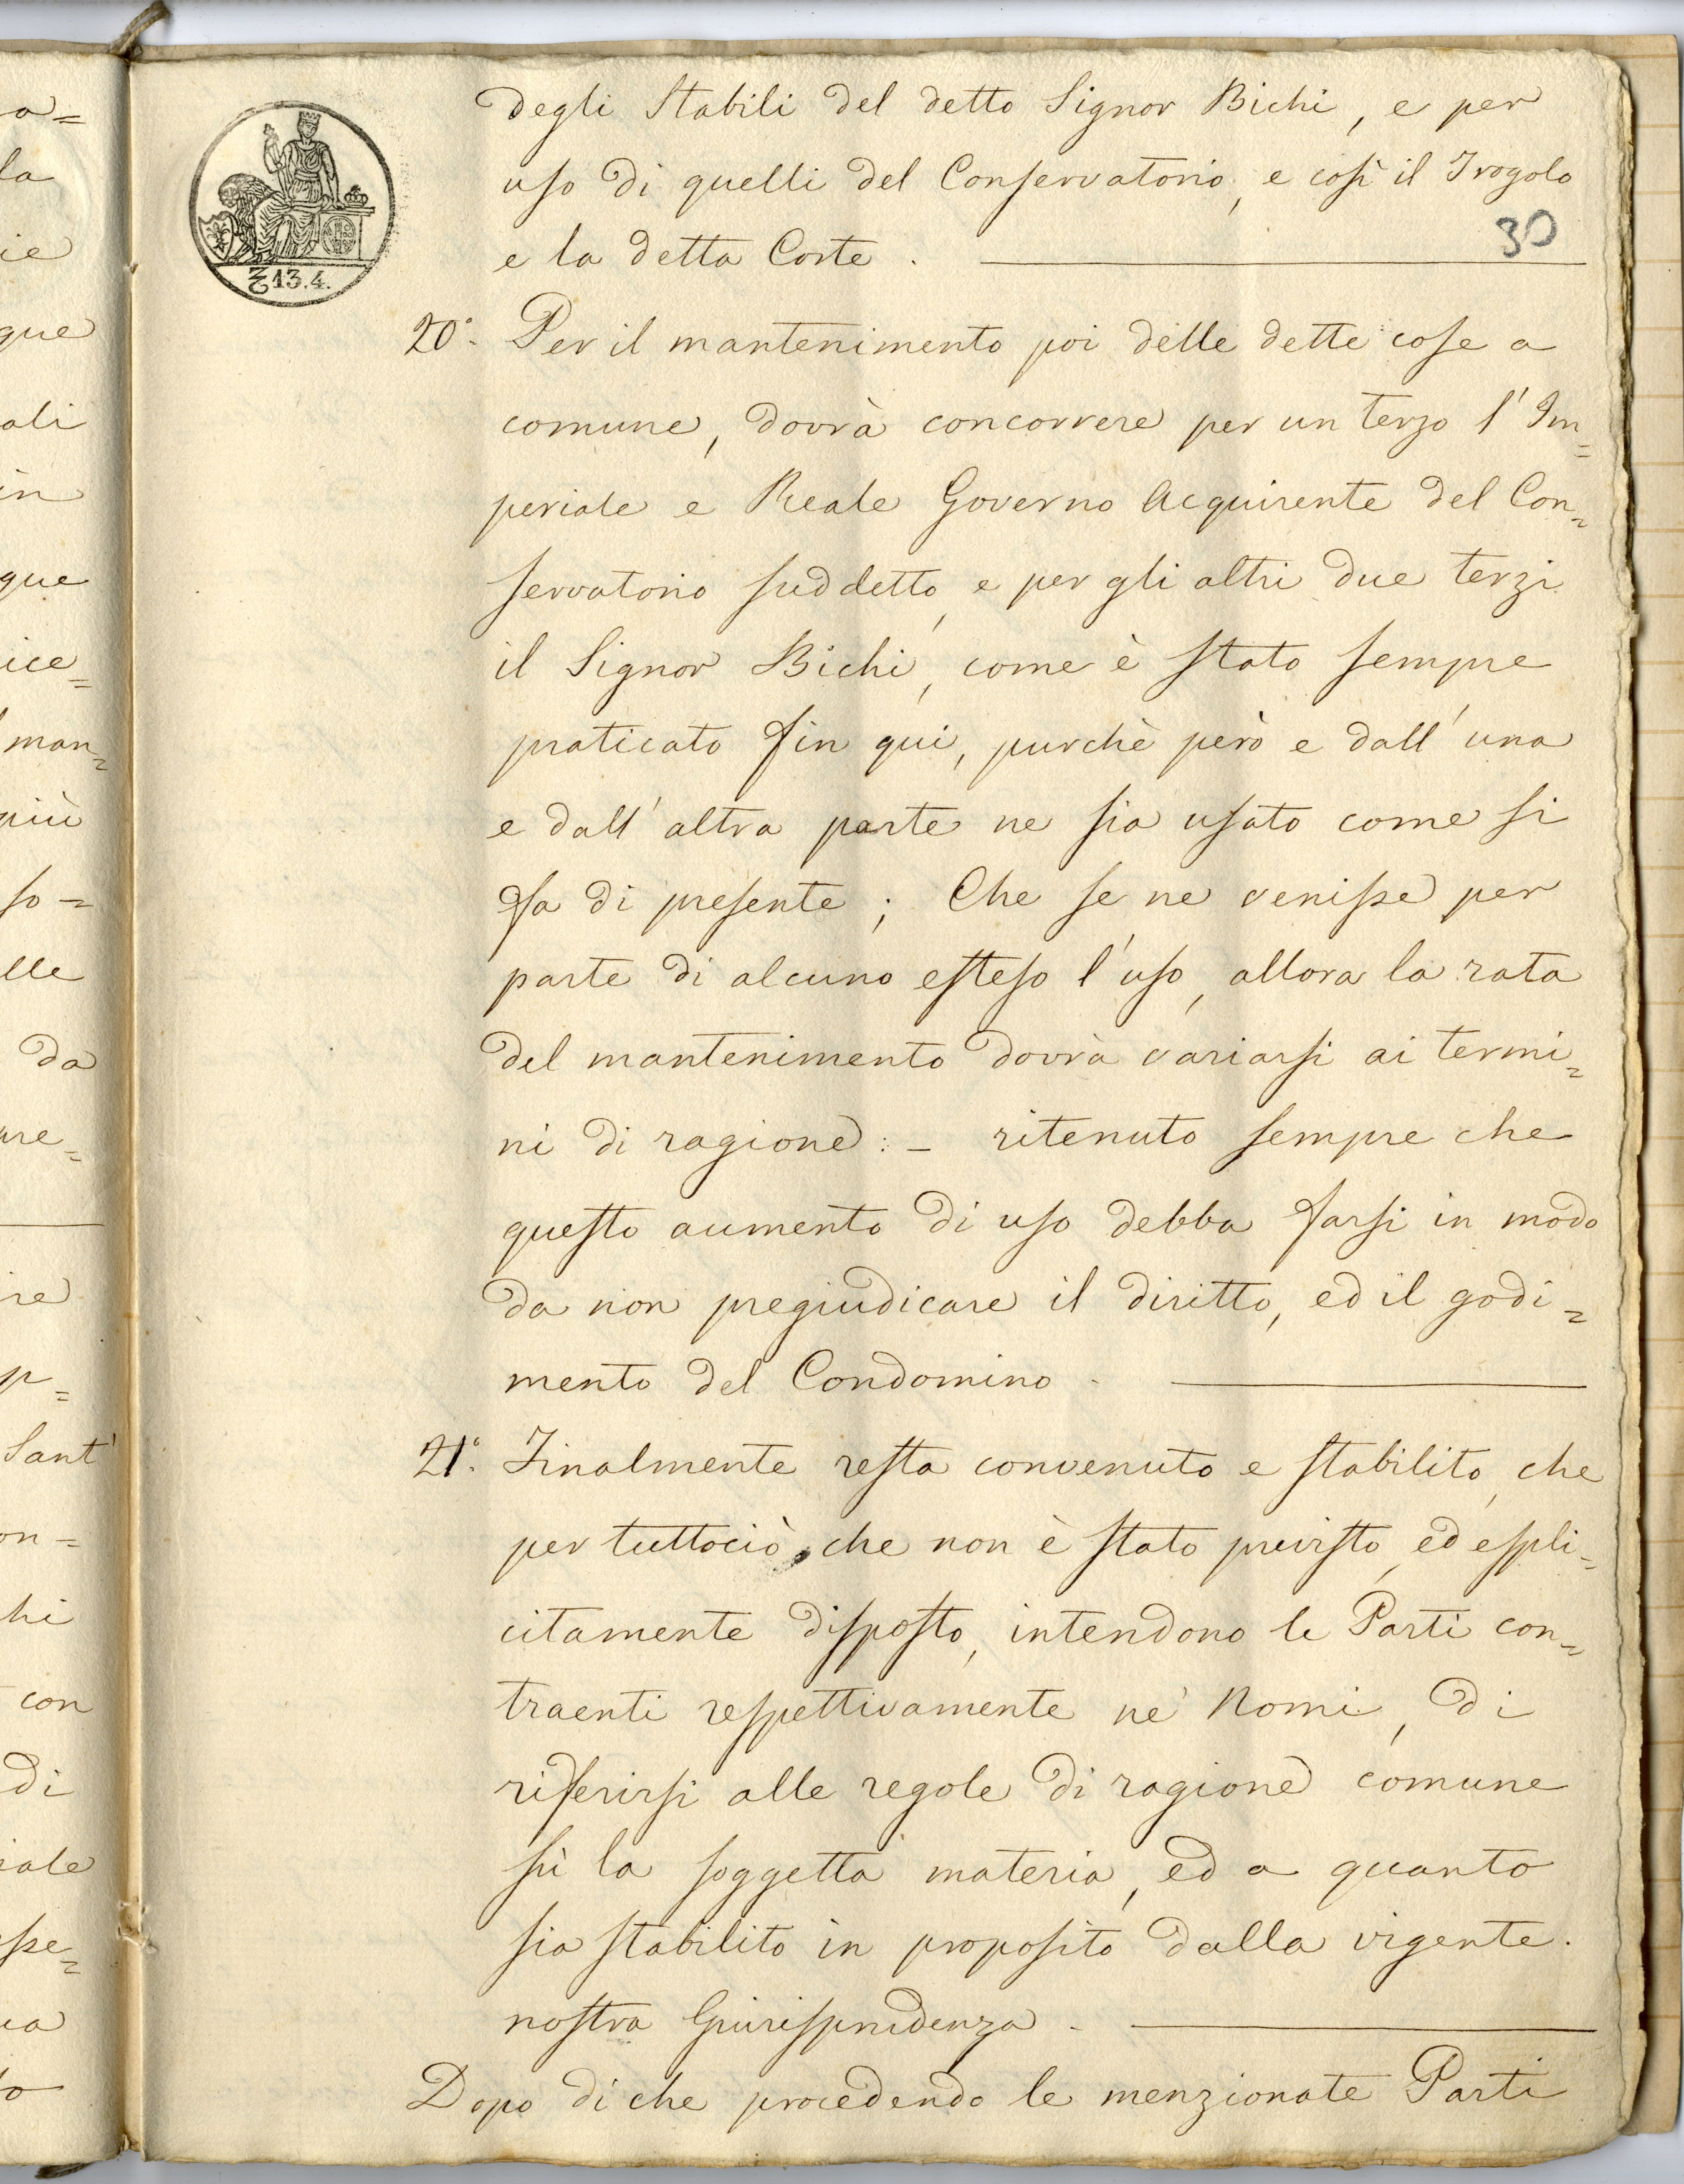 degli Stabili del detto Signor Bichi, e per
uso di quelli del Conservatorio, e così il Trogolo
30
e la detta Corte.
13.4.
20.° Per il mantenimento poi delle dette cose a
comune, dovrà concorrere per un terzo l'Im=
periale e Reale Governo Acquirente del Con=
servatorio suddetto, e per gli altri due terzi
il Signor Bichi, come è stato sempre
praticato fin qui, purchè però e dall'una
e dall'altra parte ne sia usato come si
fa di presente; Che se ne venisse per
parte di alcuno esteso l'uso, allora la rata
del mantenimento dovrà variarsi ai termi=
ni di ragione: - ritenuto sempre che
questo aumento di uso debba farsi in modo
da non pregiudicare il diritto, ed il godi=
mento del Condomino.
21.° Finalmente resta convenuto e stabilito, che
per tuttociò, che non è stato previsto, ed espli=
citamente disposto, intendono le Parti con=
traenti respettivamente ne' Nomi, di
riferirsi alle regole di ragione comune
sù la soggetta materia, ed a quanto
sia stabilito in proposito dalla vigente.
nostra Giurisprudenza.
Dopo di che procedendo le menzionate Parti
a=
la
ie
que
ali
in
que
ice=
man=
più
so=
lle
da
re
p=
Sant'
on=
hi
con
di
iale
sse=